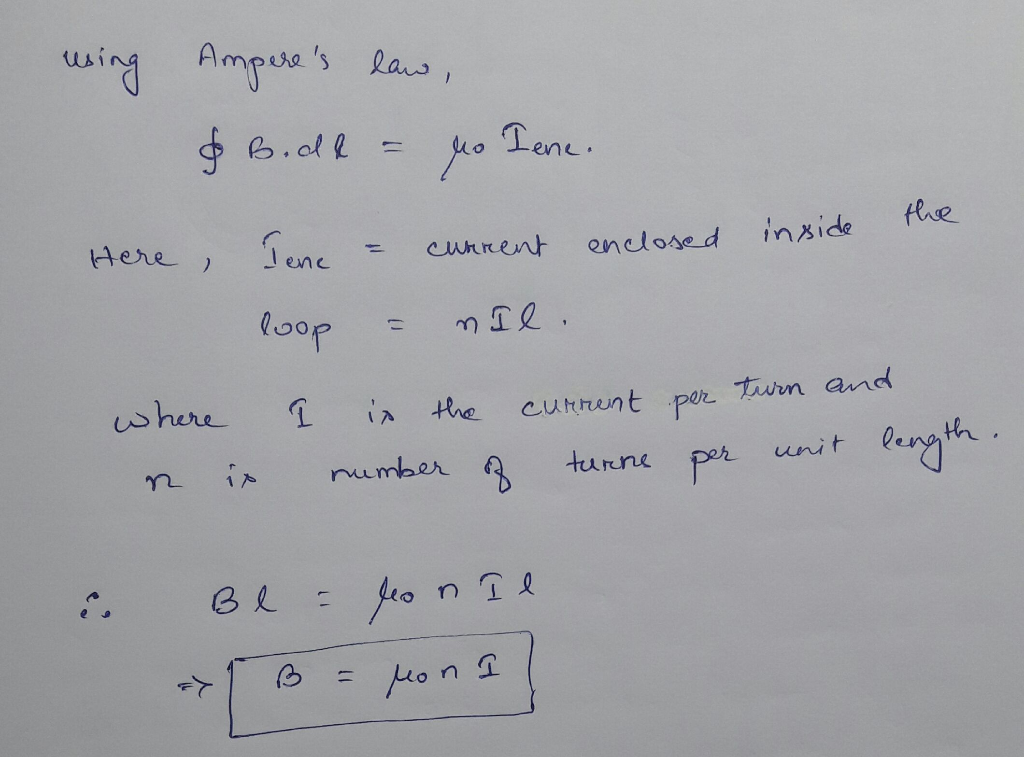 using Ampere's law,
∮ B.dl = μ0 Ienc.
Here, Ienc = current enclosed inside the
loop = nIl.
where I is the current per turn and
n is number of turns per unit length.
∴ Bl = μ0 n I l
=> B = μ0 n I